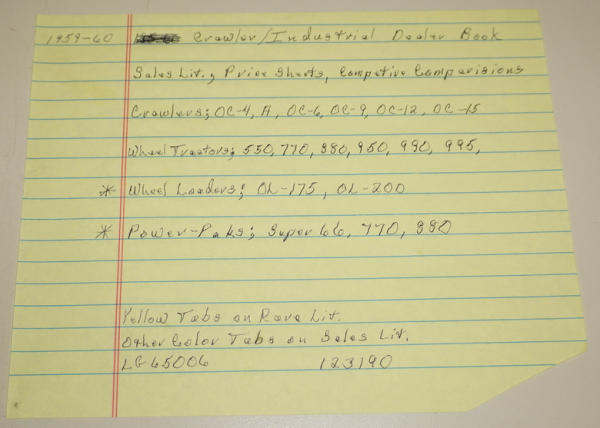 1959-60 Crawler/Industrial Dealer Book
Sales Lit., Price Sheets, Competive Comparisions
Crawlers; OC-4, A, OC-6, OC-9, OC-12, OC-15
Wheel Tractors; 550, 770, 880, 950, 990, 995,
* Wheel Loaders; OL-175, OL-200
* Power-Paks; Super 66, 770, 880
Yellow Tabs on Rare Lit.
Other Color Tabs on Sales Lit.
LG 65006 123190